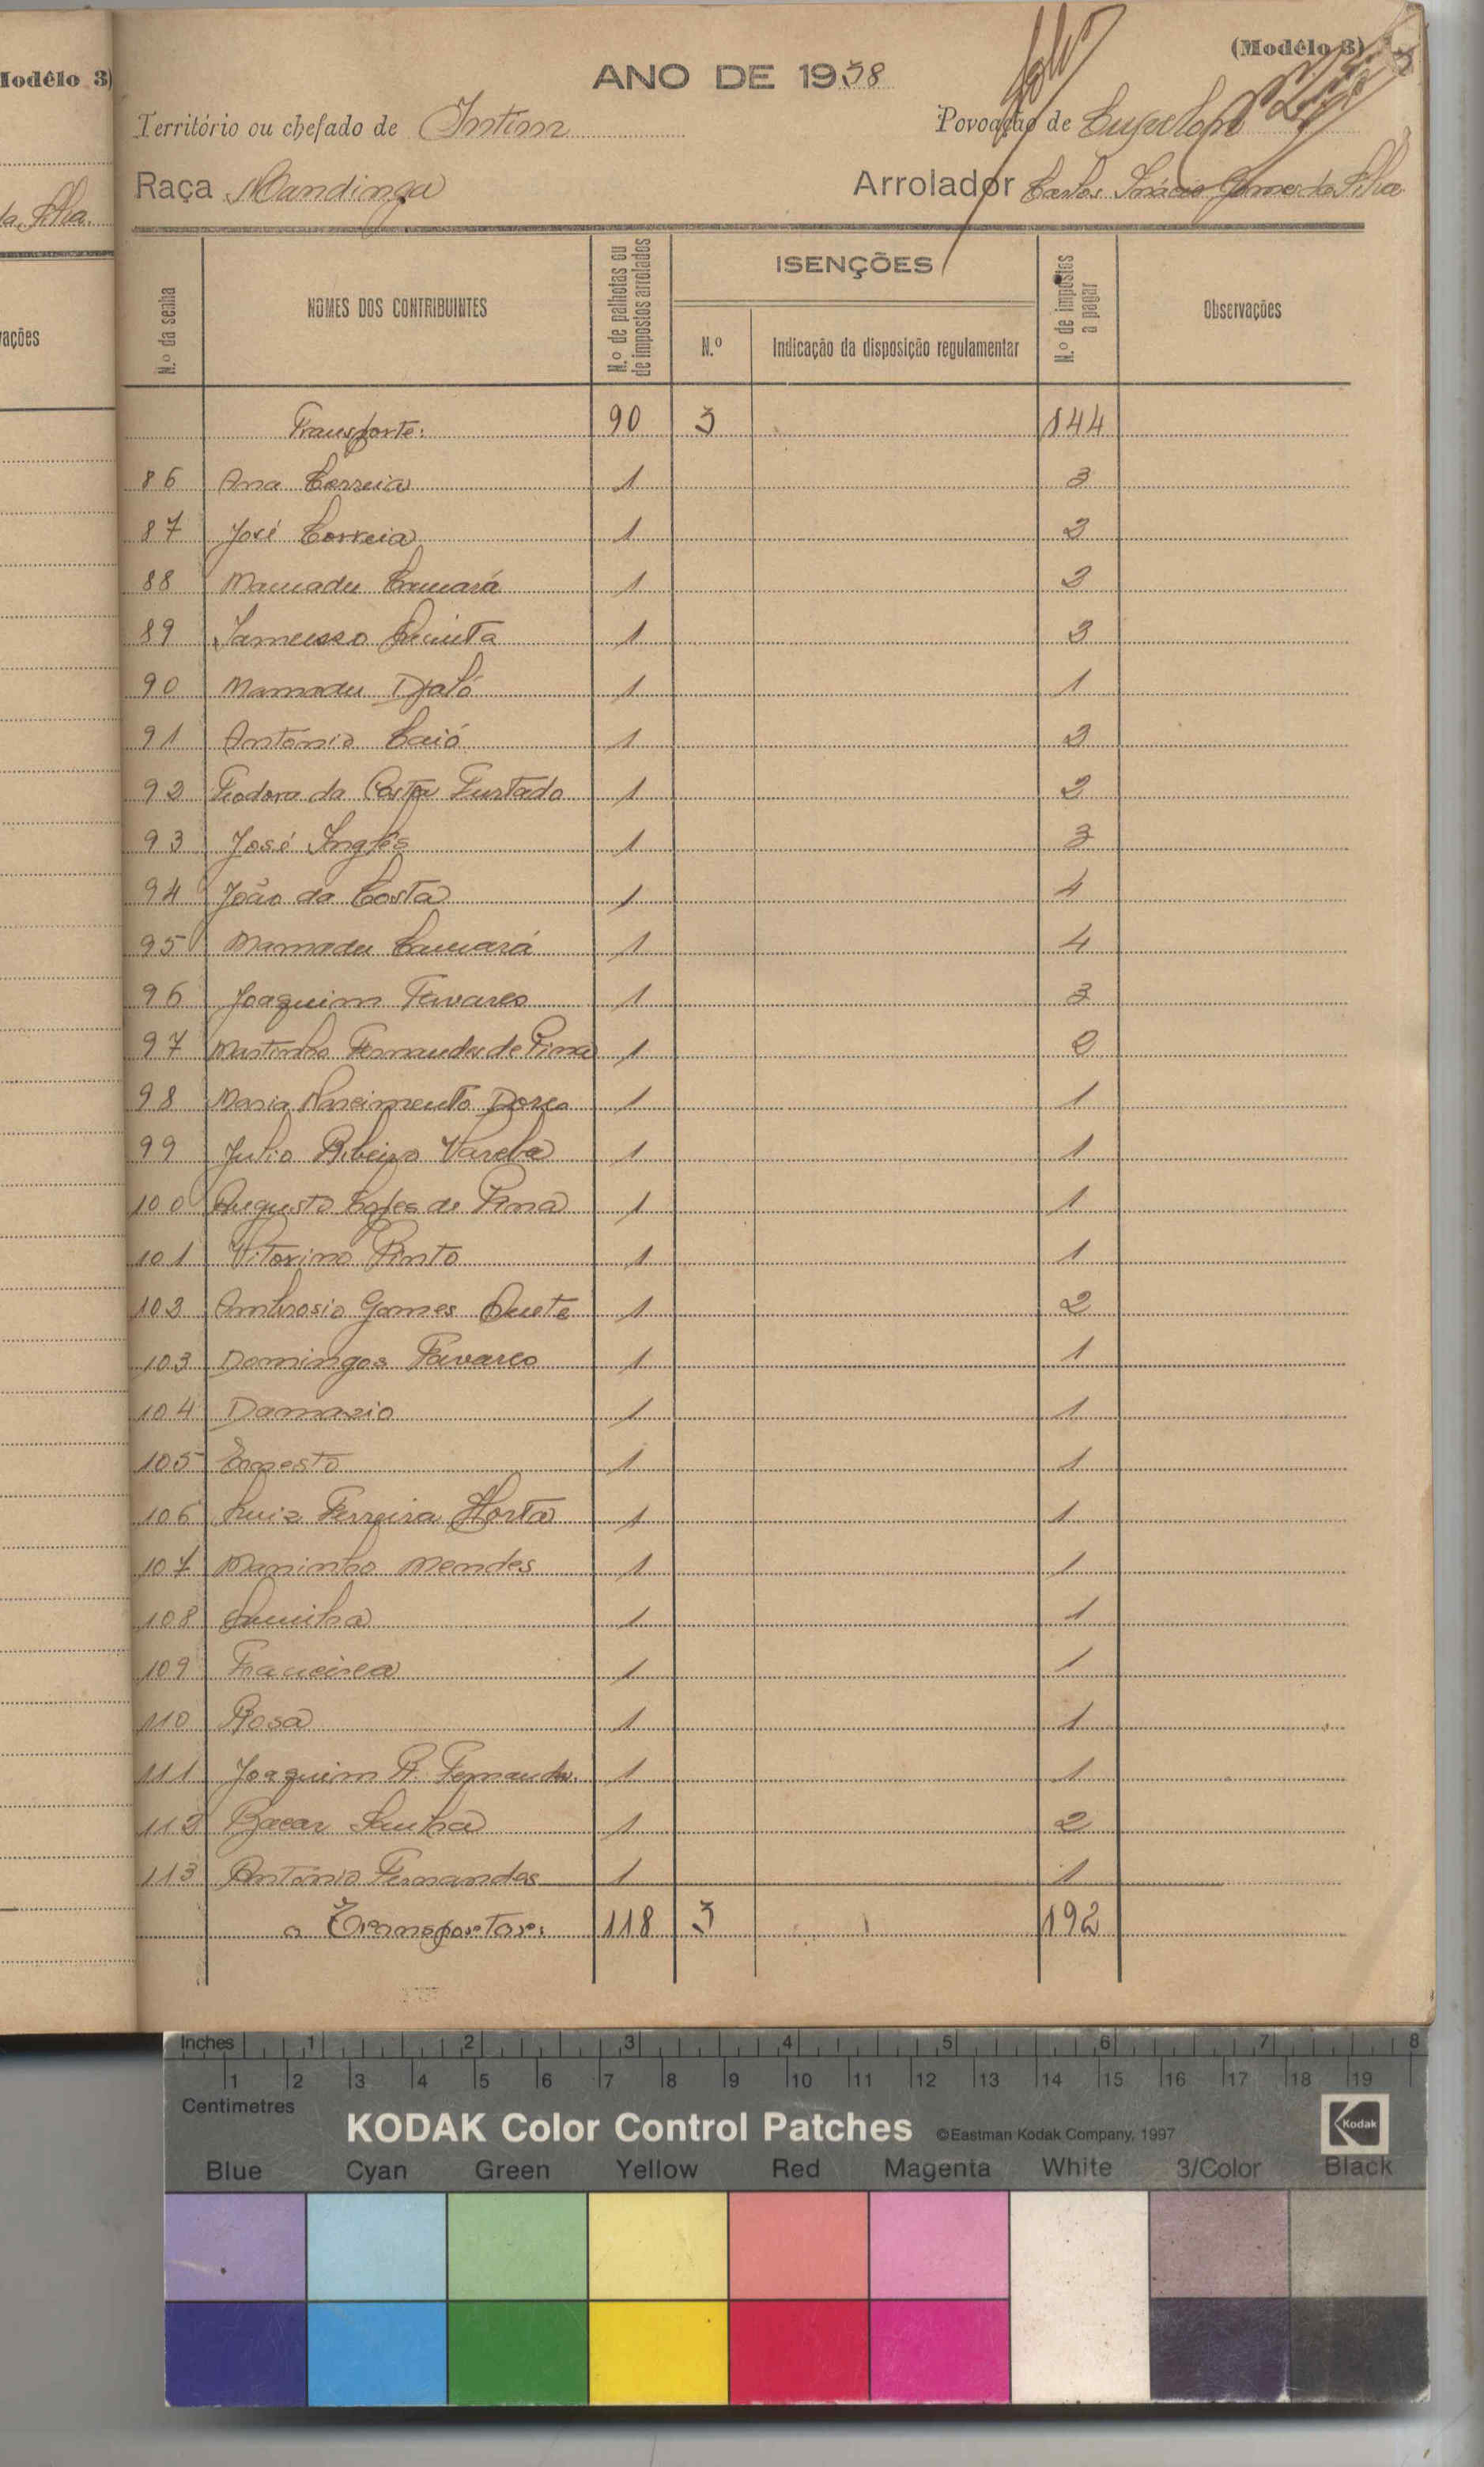 Modêlo 3)
(Modêlo 3)
ANO DE 1938
Território ou chefado de Intim
Povoação de
Raça Mandinga
Arrolador Carlos Inácio Gomes da Silva
da Silva
vações
N.º da senha
NOMES DOS CONTRIBUINTES
N.º de palhotas ou de impostos arrolados
ISENÇÕES
N.º
Indicação da disposição regulamentar
N.º de impostos a pagar
Observações
Transporte: 90 3 144
86 Ana Correia 1 3
87 José Correia 1 2
88 Mamadu Camará 1 2
89 1 3
90 Mamadu Djaló 1 1
91 António Caió 1 2
92 Teodora da Costa Furtado 1 2
93 José Inglês 1 3
94 João da Costa 1 1
95 Mamadu Camará 1 4
96 Joaquim Tavares 1 3
97 Martinho Fernandes de Pina 1 2
98 Maria Nascimento 1 1
99 Julio Ribeiro Varela 1 1
100 Augusto Lopes de Pina 1 1
101 Vitorino Pinto 1 1
102 Ambrosio Gomes 1 2
103 Domingos Tavares 1 1
104 Damazio 1 1
105 Ernesto 1 1
106 Luiz Ferreira Horta 1 1
107 Maninho Mendes 1 1
108 1 1
109 Francisca 1 1
110 Rosa 1 1
111 Joaquim R. Fernandes 1 1
112 Bacar Sanha 1 2
113 António Fernandes 1 1
a Transportar: 118 3 192
Inches 1 2 3 4 5 6 7 8
1 2 3 4 5 6 7 8 9 10 11 12 13 14 15 16 17 18 19
Centimetres
KODAK Color Control Patches ©Eastman Kodak Company, 1997 Kodak
Blue Cyan Green Yellow Red Magenta White 3/Color Black